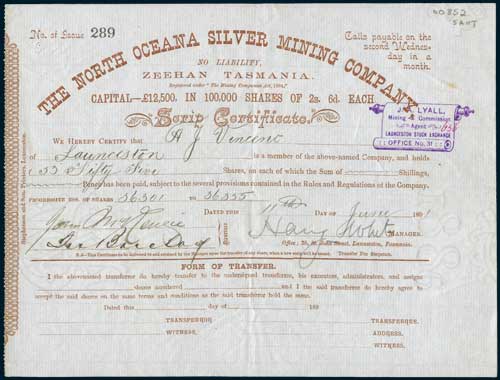 60852
No. of Issue 289
Calls payable on the
second Wednes-
day in a
month.
THE NORTH OCEANA SILVER MINING COMPANY
NO LIABILITY,
ZEEHAN TASMANIA.
Registered under "The Mining Companies Act, 1884."
CAPITAL—£12,500, IN 100,000 SHARES OF 2s. 6d. EACH
Scrip Certificate.
J. R. LYALL,
Mining & Commission
Agent
LAUNCESTON STOCK EXCHANGE
OFFICE No. 31
We Hereby Certify that A J Vincent
of Launceston is a member of the above-named Company, and holds
55 Fifty Five Shares, on each of which the Sum of Shilling
Pence has been paid, subject to the several provisions contained in the Rules and Regulations of the Company.
PROGRESSIVE NOS. OF SHARES 36301 to 36355
DATED THIS 11th DAY OF June 189
MANAGER.
Office: Launceston, Tasmania.
N.B.—This Certificate to be delivered to and retained by the Manager upon the transfer of any share, when a new one will be granted. Transfer Fee
FORM OF TRANSFER.
I the abovenamed transferor do hereby transfer to the undersigned transferee, his executors, administrators, and assigns
shares numbered and I the said transferee do hereby agree to
accept the said shares on the same terms and conditions as the transferor held the same.
Dated this day of 189
TRANSFEROR. TRANSFEREE.
WITNESS. ADDRESS.
WITNESS.